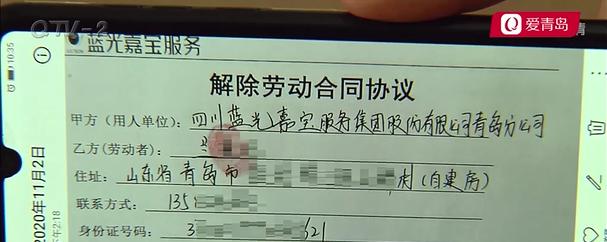 QTV-2
爱青岛
10:35
蓝光嘉宝服务
解除劳动合同协议
甲方（用人单位）：四川蓝光嘉宝服务集团股份有限公司青岛分公司
乙方(劳动者)：
住址：山东省青岛市 村（自建房）
联系方式：135
身份证号码：3 621
2020年11月2日
下午2:18